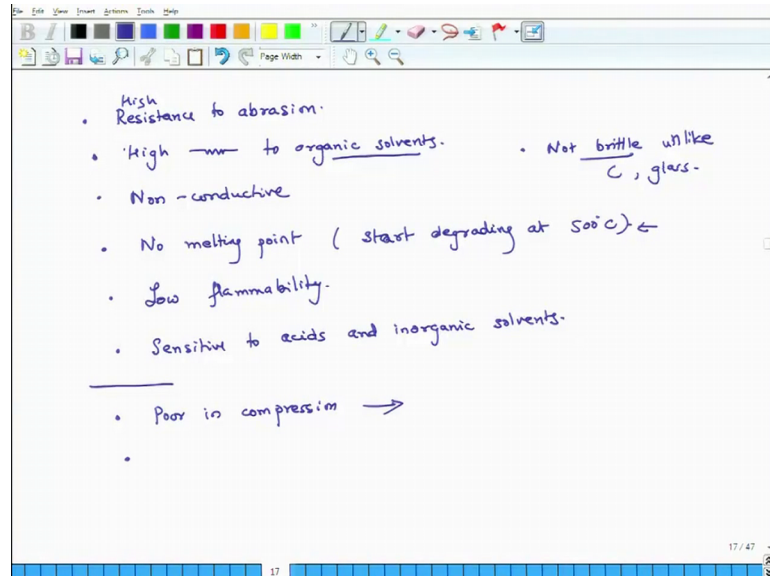 File Edit View Insert Actions Tools Help
B I
Page Width
High
• Resistance to abrasion.
• High — to organic solvents.
• Not brittle unlike
C, glass.
• Non-conductive
• No melting point ( start degrading at 500°C) ←
• Low flammability.
• Sensitive to acids and inorganic solvents.
• Poor in compression →
•
17 / 47
17